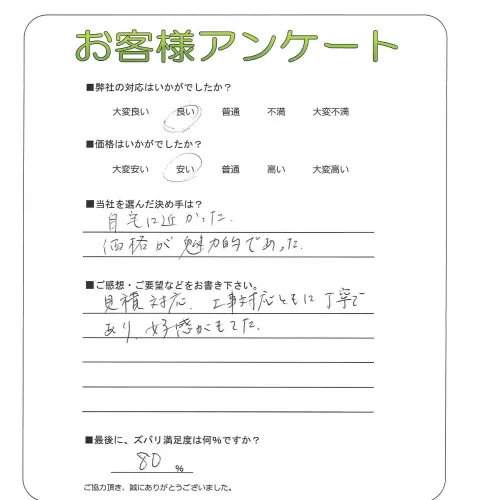 お客様アンケート
■弊社の対応はいかがでしたか？
大変良い 良い 普通 不満 大変不満
■価格はいかがでしたか？
大変安い 安い 普通 高い 大変高い
■当社を選んだ決め手は？
自宅に近かった.
価格が魅力的であった.
■ご感想・ご要望などをお書き下さい。
見積対応、工事対応ともに丁寧で
あり、好感がもてた.
■最後に、ズバリ満足度は何％ですか？
80 %
ご協力頂き、誠にありがとうございました。